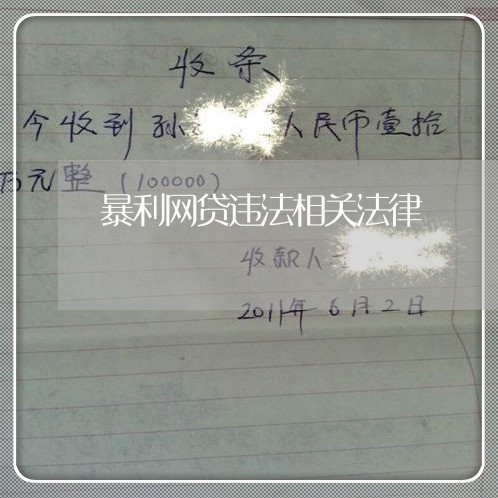 收条
今收到孙 人民币壹拾
万元整(100000)
暴利网贷违法相关法律
收款人
2011年6月2日